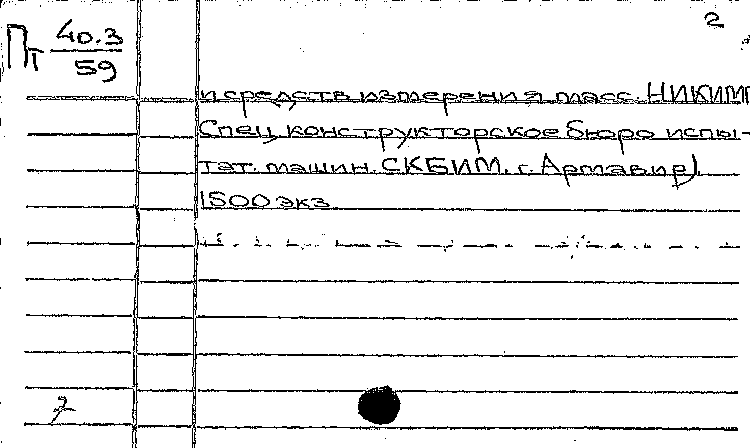 2
Пт 40.3
59
и средств измерения масс. НИКИМП
Спец. конструкторское бюро испы-
тат. машин. СКБИМ. г. Армавир)
1500 экз.
7